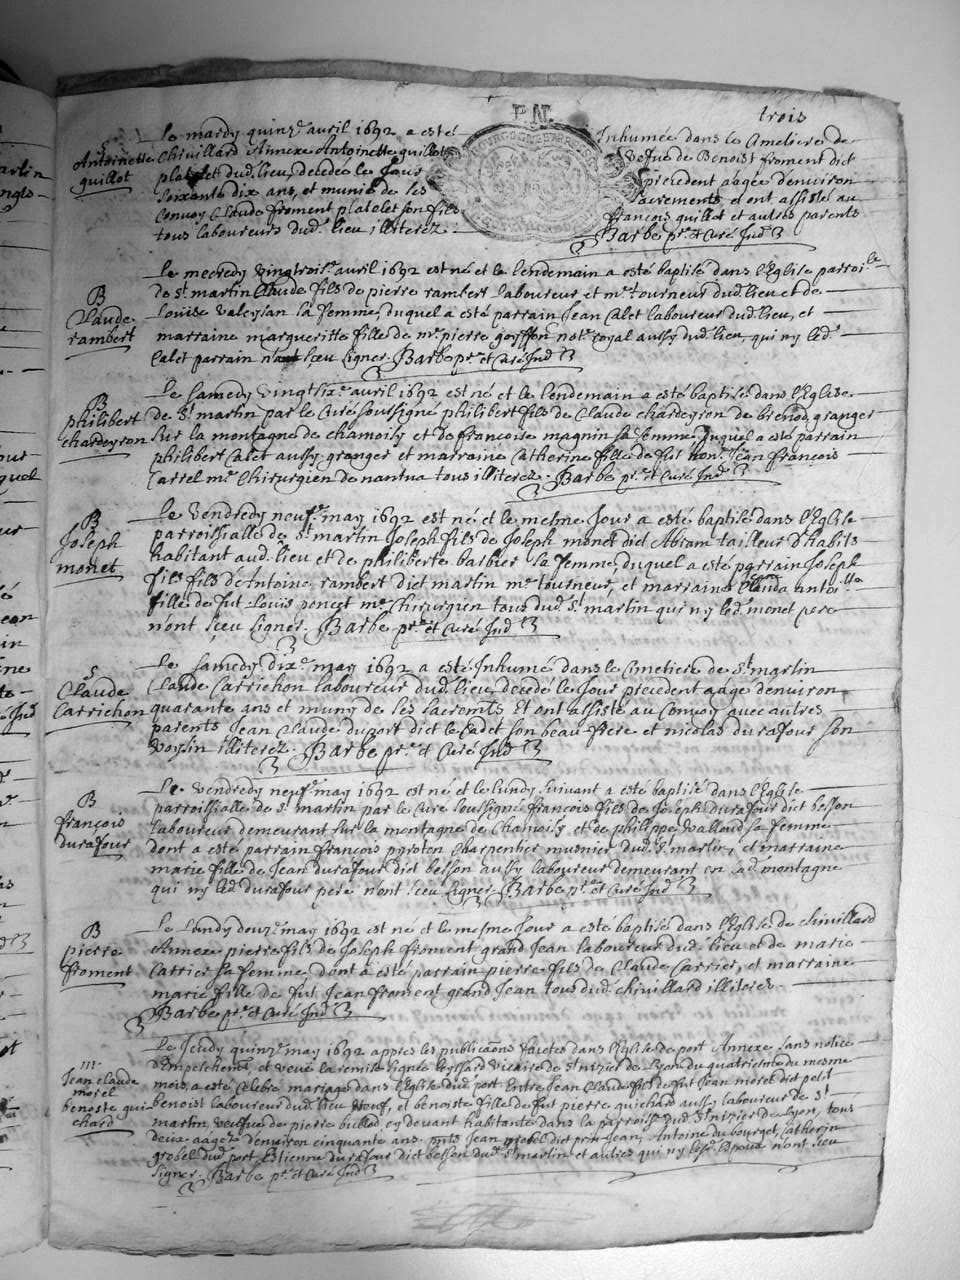 P. N.
trois
S
Antoinette
quillot
Le mardy quinz.e avril 1692 a esté Inhumée dans le Ameliere de
Chivillard Annexe Antoinette quillot vefue de Benoist froment dict
platelet dud. lieu, decedée le Jour precedent aagée d'environ
soixante dix ans, et munie de ses sacrements, et ont assisté au
Convoy Claude froment platelet son fils françois quillot et autres parents
tous laboureurs dud. lieu illiterez. Barbe p.r et Curé Ind.
B
Claude
rambert
Le mecredy vingtrois.e avril 1692 est né et le lendemain a esté baptisé dans l'Eglise parroi.lle
de S.t martin Claude fils de pierre rambert laboureur et m.e tourneur dud. lieu et de
Louise valeysan sa femme, duquel a esté parrain Jean Calet laboureur dud. lieu, et
marraine margueritte fille de m.e pierre goyffon not.e royal aussy dud. lieu, qui ny led.
Calet parrain n'ont sçeu signer. Barbe p.r et Curé Ind.
B
philibert
chardeyron
Le samedy vingtsix.e avril 1692 est né et le lendemain a esté baptisé dans l'Eglise
de S.t martin par le Curé soussigné philibert fils de Claude chardeyron de brenod, granger
sur la montagne de chamoisy et de françoise magnin sa femme duquel a esté parrain
philibert Calet aussy granger et marraine Catherine fille de fut hon. Jean françois
Carrel m.e Chirurgien de nantua tous illiterez. Barbe p.r et Curé Ind.
B
Joseph
monet
Le vendredy neuf.e may 1692 est né et le mesme Jour a esté baptisé dans l'Eglise
parroissialle de S.t martin Joseph fils de Joseph monet dict Abram tailleur d'habits
habitant aud. lieu et de philiberte barbier sa femme, duquel a esté parrain Joseph
fils fils d'Antoine rambert dict martin m.e tourneur, et marraine Clauda antoi.lle
fille de fut Louis poncet m.e Chirurgien tous dud. S.t martin qui ny led. monet pere
n'ont sçeu signer. Barbe p.r et Curé Ind.
S
Claude
Carrichon
Le samedy dix.e may 1692 a esté Inhumé dans le Cimetiere de S.t martin
Claude Carrichon laboureur dud. lieu, decedé le Jour precedent aagé d'environ
quarante ans et muny de ses sacrem.ts Et ont assisté au Convoy avec autres
parents Jean Claude duport dict le Cadet son beau frere et nicolas durafour son
voysin illiterez. Barbe p.r et Curé Ind.
B
françois
durafour
Le vendredy neuf.e may 1692 est né et le lundy suivant a esté baptisé dans l'Eglise
parroissialle de S.t martin par le Curé soussigné françois fils de Joseph durafour dict besson
laboureur demeurant sur la montagne de Chamoisy, et de philippe valloud sa femme
dont a esté parrain françois pyroton Charpentier musnier dud. S.t martin, et marraine
marie fille de Jean durafour dict besson aussy laboureur demeurant en lad. montagne
qui ny led. durafour pere n'ont sçeu signer. Barbe p.r et Curé Ind.
B
pierre
froment
Le Lundy douz.e may 1692 est né et le mesme Jour a esté baptisé dans l'Eglise de chivillard
Annexe pierre fils de Joseph froment grand Jean laboureur dud. lieu et de marie
Carrier sa femme dont a esté parrain pierre fils de Claude Carrier, et marraine
marie fille de fut Jean froment grand Jean tous dud. chivillard illiterez.
Barbe p.r et Curé Ind.
m
Jean claude
morel
benoste qui
chard
Le Jeudy quinz.e may 1692 appres les publicaõns faictes dans l'Eglise de port Annexe sans notice
d'Empeschem.t et veüe la remise signée Vicaire de S.t nizier de Lyon du quatriesme du mesme
mois, a esté Celebré mariage dans l'Eglise dud. port Entre Jean Claude fils de fut Jean morel dict petit
benoist laboureur dud. lieu Veuf, et benoiste fille de fut pierre quichard aussy laboureur de S.t
martin, veufve de pierre cy devant habitante dans la parroisse dud. S.t nizier de Lyon, tous
deux aagez d'environ cinquante ans. pnts Jean grobel dict prin Jean, Antoine du bourget, Catherin
grobel dud. port Estienne durafour dict besson dud. S.t martin et autres qui ny lesd. Espoux n'ont sceu
signer. Barbe p.r et Curé Ind.